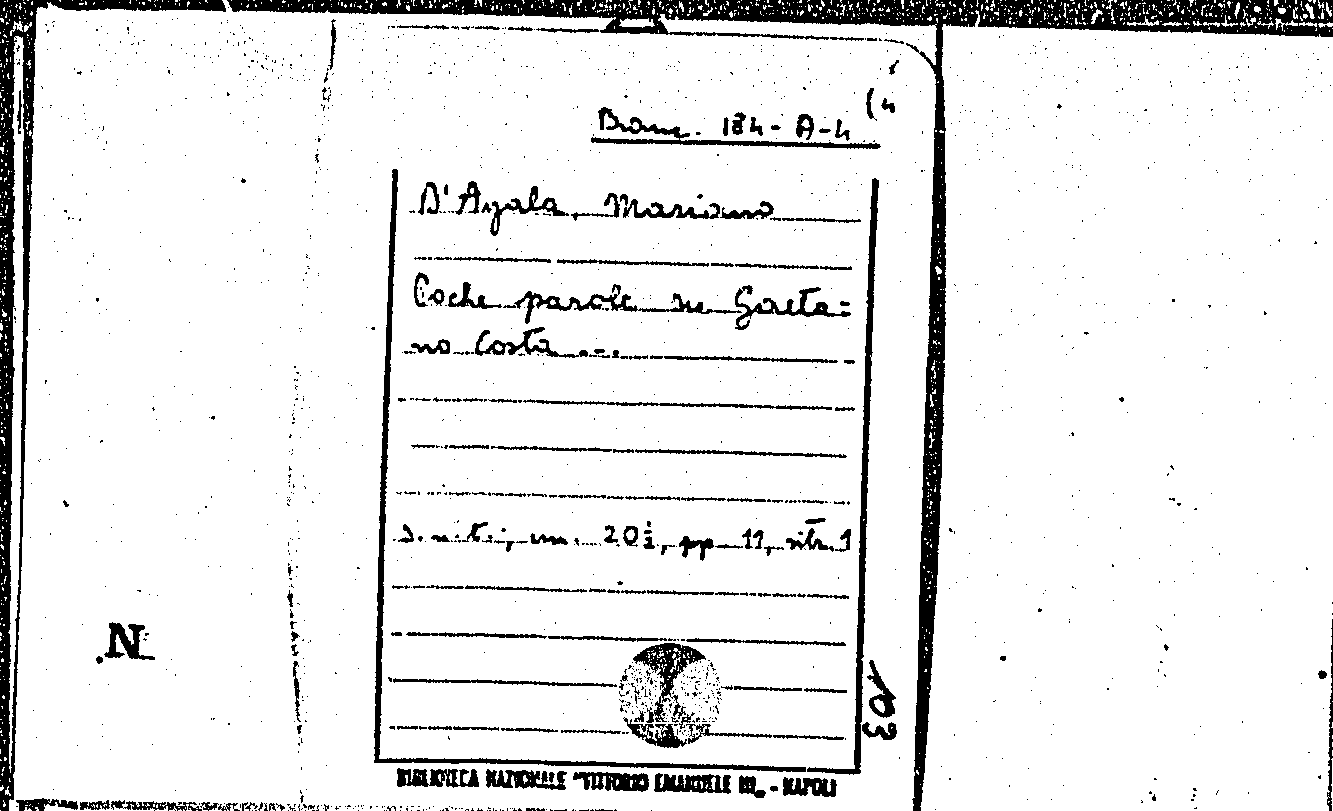 (4
Branc. 184-A-4
D'Ayala, Mariano
Poche parole su Gaeta=
no Costa ...
s.n.t.; cm. 20½, pp. 11, ritr. 1
N
103
BIBLIOTECA NAZIONALE "VITTORIO EMANUELE III" - NAPOLI